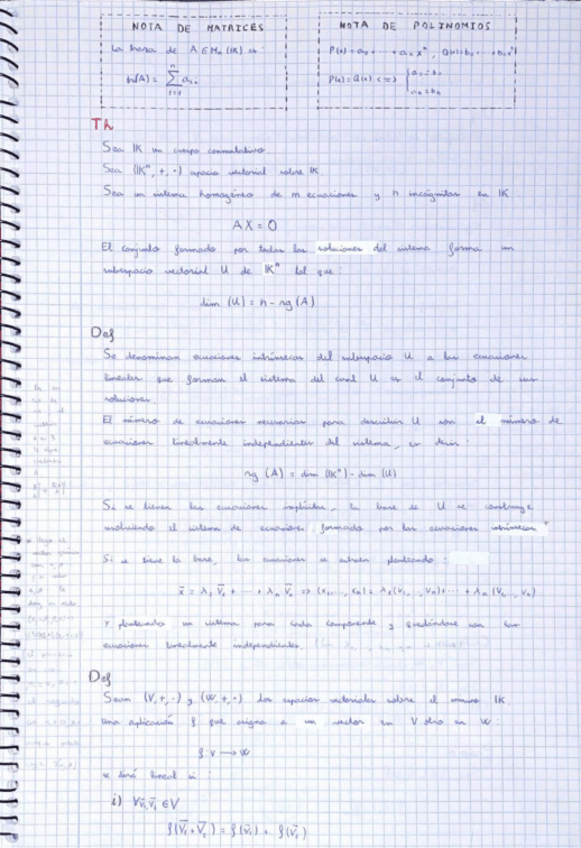 NOTA DE MATRICES
La traza de A ∈ Mn (IK) es:
tr(A) = Σ
NOTA DE POLINOMIOS
P(x) = a₀ + ... + aₙ xⁿ, Q(x) = b₀ + ... + bₙ xⁿ
P(x) = Q(x) <=> { a₀ = b₀
aₙ = bₙ
Th
Sea IK un cuerpo conmutativo.
Sea (IKⁿ, +, ·) espacio vectorial sobre IK.
Sea un sistema homogéneo de m ecuaciones y n incógnitas en IK
AX = 0
El conjunto formado por todas las soluciones del sistema forma un
subespacio vectorial U de IKⁿ tal que:
dim (U) = n - rg (A)
Def
Se denominan ecuaciones intrínsecas del subespacio U a las ecuaciones
lineales que forman el sistema del cual U es el conjunto de sus
soluciones.
El número de ecuaciones necesarias para describir U son el número de
ecuaciones linealmente independientes del sistema, es decir:
rg (A) = dim (IKⁿ) - dim (U)
Si se tienen las ecuaciones implícitas, la base de U se construye
resolviendo el sistema de ecuaciones formado por las ecuaciones intrínsecas
Si se tiene la base, las ecuaciones se extraen planteando:
y planteando un sistema para cada componente y quedándose con las
ecuaciones linealmente independientes.
Def
Sean (V, +, ·) y (W, +, ·) dos espacios vectoriales sobre el mismo IK.
Una aplicación f que asigna a un vector en V otro en W:
f: V → W
se dirá lineal si:
i) ∀ v̄₁, v̄₂ ∈ V
f(v̄₁ + v̄₂) = f(v̄₁) + f(v̄₂)